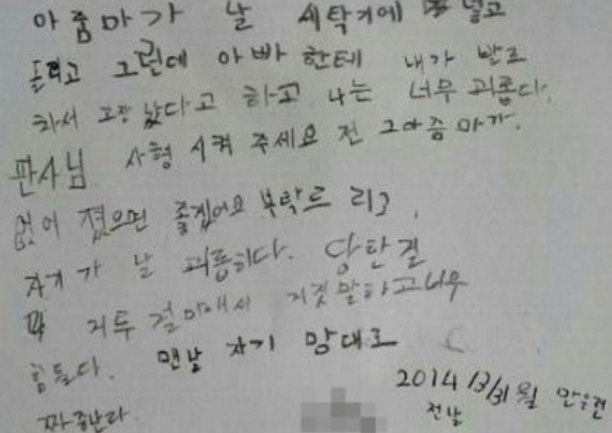 아줌마가 날 세탁기에 넣고
돌리고 그런데 아빠 한테 내가 발로
차서 고장 났다고 하고 나는 너무 괴롭다.
판사님 사형 시켜 주세요 전 그아줌마가.
없어 졌으면 좋겠어요 부탁드리고,
자기가 날 괴롭히다. 당한걸
거짓말하고너무
힘들다. 맨날 자기 맘대로
2014 월
전날
짜증난다.